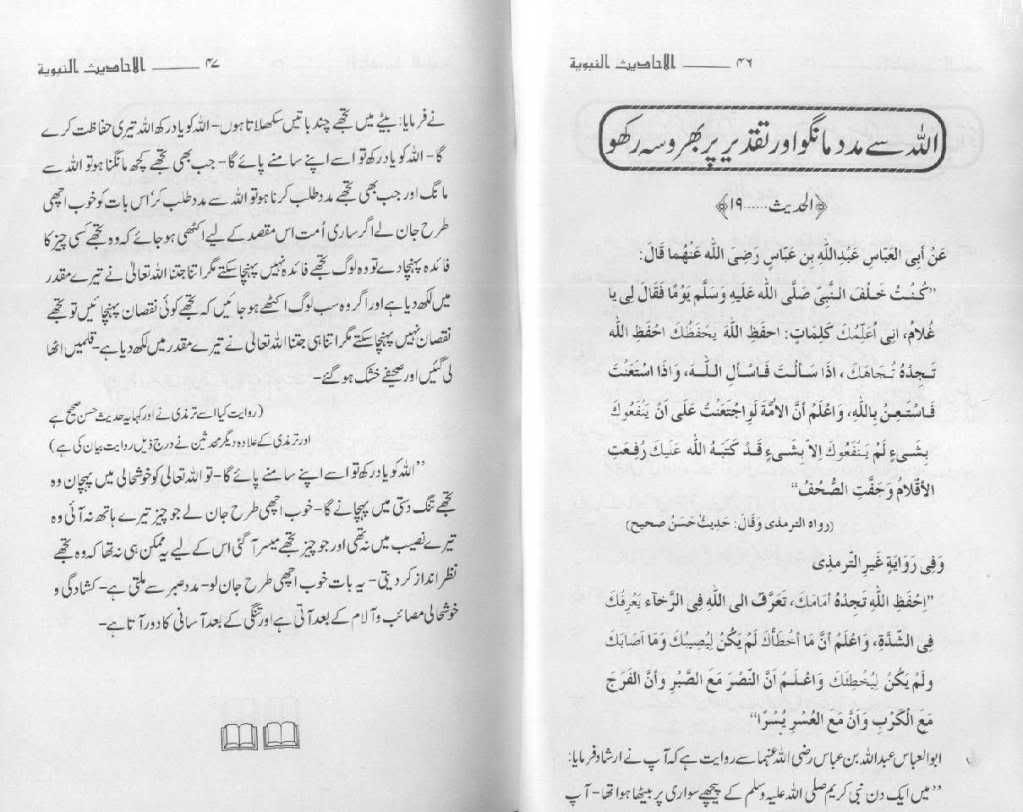 ۴۶ ــــــــ الاحادیث النبویة
اللہ سے مدد مانگو اور تقدیر پر بھروسہ رکھو
﴿الحدیث......۱۹﴾
عَنْ أبی العَبّاسِ عَبْدِاللّٰہِ بن عَبّاسٍ رَضِیَ اللّٰہ عَنْھُما قَالَ:
”کُنْتُ خَلْفَ النَّبِیِّ صَلَّی اللّٰہ عَلَیہِ وَسَلَّم یَوْمًا فَقَالَ لِی یا
غُلَامُ، انِی اُعَلِّمُكَ کَلِمَاتٍ: احفَظِ اللّٰہَ یَحْفَظْكَ احْفَظِ اللّٰہ
تَجِدْہُ تُجَاھَكَ، اذَا سَألْتَ فَاسْألِ اللّٰہَ، وَاذَا اسْتَعَنْتَ
فَاسْتَعِنْ بِاللّٰہِ، وَاعْلَمْ أنَّ الامَّةَ لَوِاجْتَمَعْتُ عَلَی اَنْ یَنْفَعُوكَ
بِشَیءٍ لَمْ یَنْفَعُوكَ اِلاَّ بِشَیءٍ قَدْ کَتَبَہُ اللّٰہ عَلَیكَ رُفِعَتِ
الأقْلَامُ وَجَفَّتِ الصُّحُفُ“
(رواہ الترمذی وَقَالَ: حَدِیثٌ حَسَنٌ صحیح)
وَفِی رَوَایَةٍ غَیرِ التّرمِذِی
”اِحْفَظِ اللّٰہَ تَجِدْہُ أمَامَكَ، تَعَرَّف الی اللّٰہِ فِی الرَّخَآء یَعْرِفُكَ
فِی الشِّدَّةِ، وَاعْلَمْ أنَّ مَا اَخْطَأكَ لَمْ یَکُنْ لِیُصِیْبُكَ وَمَا اَصَابَكَ
ولَمْ یَکُنْ لِیُخْطِئَكَ وَاعْلَمْ اَنَّ النَّصْرَ مَعَ الصَّبْرِ وَأنَّ الفَرَجَ
مَعَ الْکَرْبِ وَاَنَّ مَعَ العُسْرِ یُسْرًا“
ابوالعباس عبداللہ بن عباس رضی اللہ عنہما سے روایت ہے کہ آپ نے ارشاد فرمایا:
”میں ایک دن نبی کریم صلی اللہ علیہ وسلم کے پیچھے سواری پر بیٹھا ہوا تھا۔ آپ
۴۷ ــــــــ الاحادیث النبویة
نے فرمایا: بیٹے میں تجھے چند باتیں سکھلاتا ہوں۔ اللہ کو یاد رکھ اللہ تیری حفاظت کرے
گا۔ اللہ کو یاد رکھ تو اسے اپنے سامنے پائے گا۔ جب بھی تجھے کچھ مانگنا ہو تو اللہ سے
مانگ اور جب بھی تجھے مدد طلب کرنا ہو تو اللہ سے مدد طلب کر‘ اس بات کو خوب اچھی
طرح جان لے اگر ساری اُمت اس مقصد کے لیے اکٹھی ہو جائے کہ وہ تجھے کسی چیز کا
فائدہ پہنچا دے تو وہ لوگ تجھے فائدہ نہیں پہنچا سکتے مگر اتنا جتنا اللہ تعالیٰ نے تیرے مقدر
میں لکھ دیا ہے اور اگر وہ سب لوگ اکٹھے ہو جائیں کہ تجھے کوئی نقصان پہنچائیں تو تجھے
نقصان نہیں پہنچا سکتے مگر اتنا ہی جتنا اللہ تعالیٰ نے تیرے مقدر میں لکھ دیا ہے۔ قلمیں اٹھا
لی گئیں اور صحیفے خشک ہو گئے۔
(روایت کیا اسے ترمذی نے اور کہا یہ حدیث حسن صحیح ہے
اور ترمذی کے علاوہ دیگر محدثین نے درج ذیل روایت بیان کی ہے)
”اللہ کو یاد رکھ تو اسے اپنے سامنے پائے گا۔ تو اللہ تعالیٰ کو خوشحالی میں پہچان وہ
تجھے تنگ دستی میں پہچانے گا۔ خوب اچھی طرح جان لے جو چیز تیرے ہاتھ نہ آئی وہ
تیرے نصیب میں نہ تھی اور جو چیز تجھے میسر آ گئی اس کے لیے یہ ممکن ہی نہ تھا کہ وہ تجھے
نظر انداز کر دیتی۔ یہ بات خوب اچھی طرح جان لو۔ مدد صبر سے ملتی ہے۔ کشادگی و
خوشحالی مصائب و آلام کے بعد آتی ہے اور تنگی کے بعد آسانی کا دور آتا ہے۔